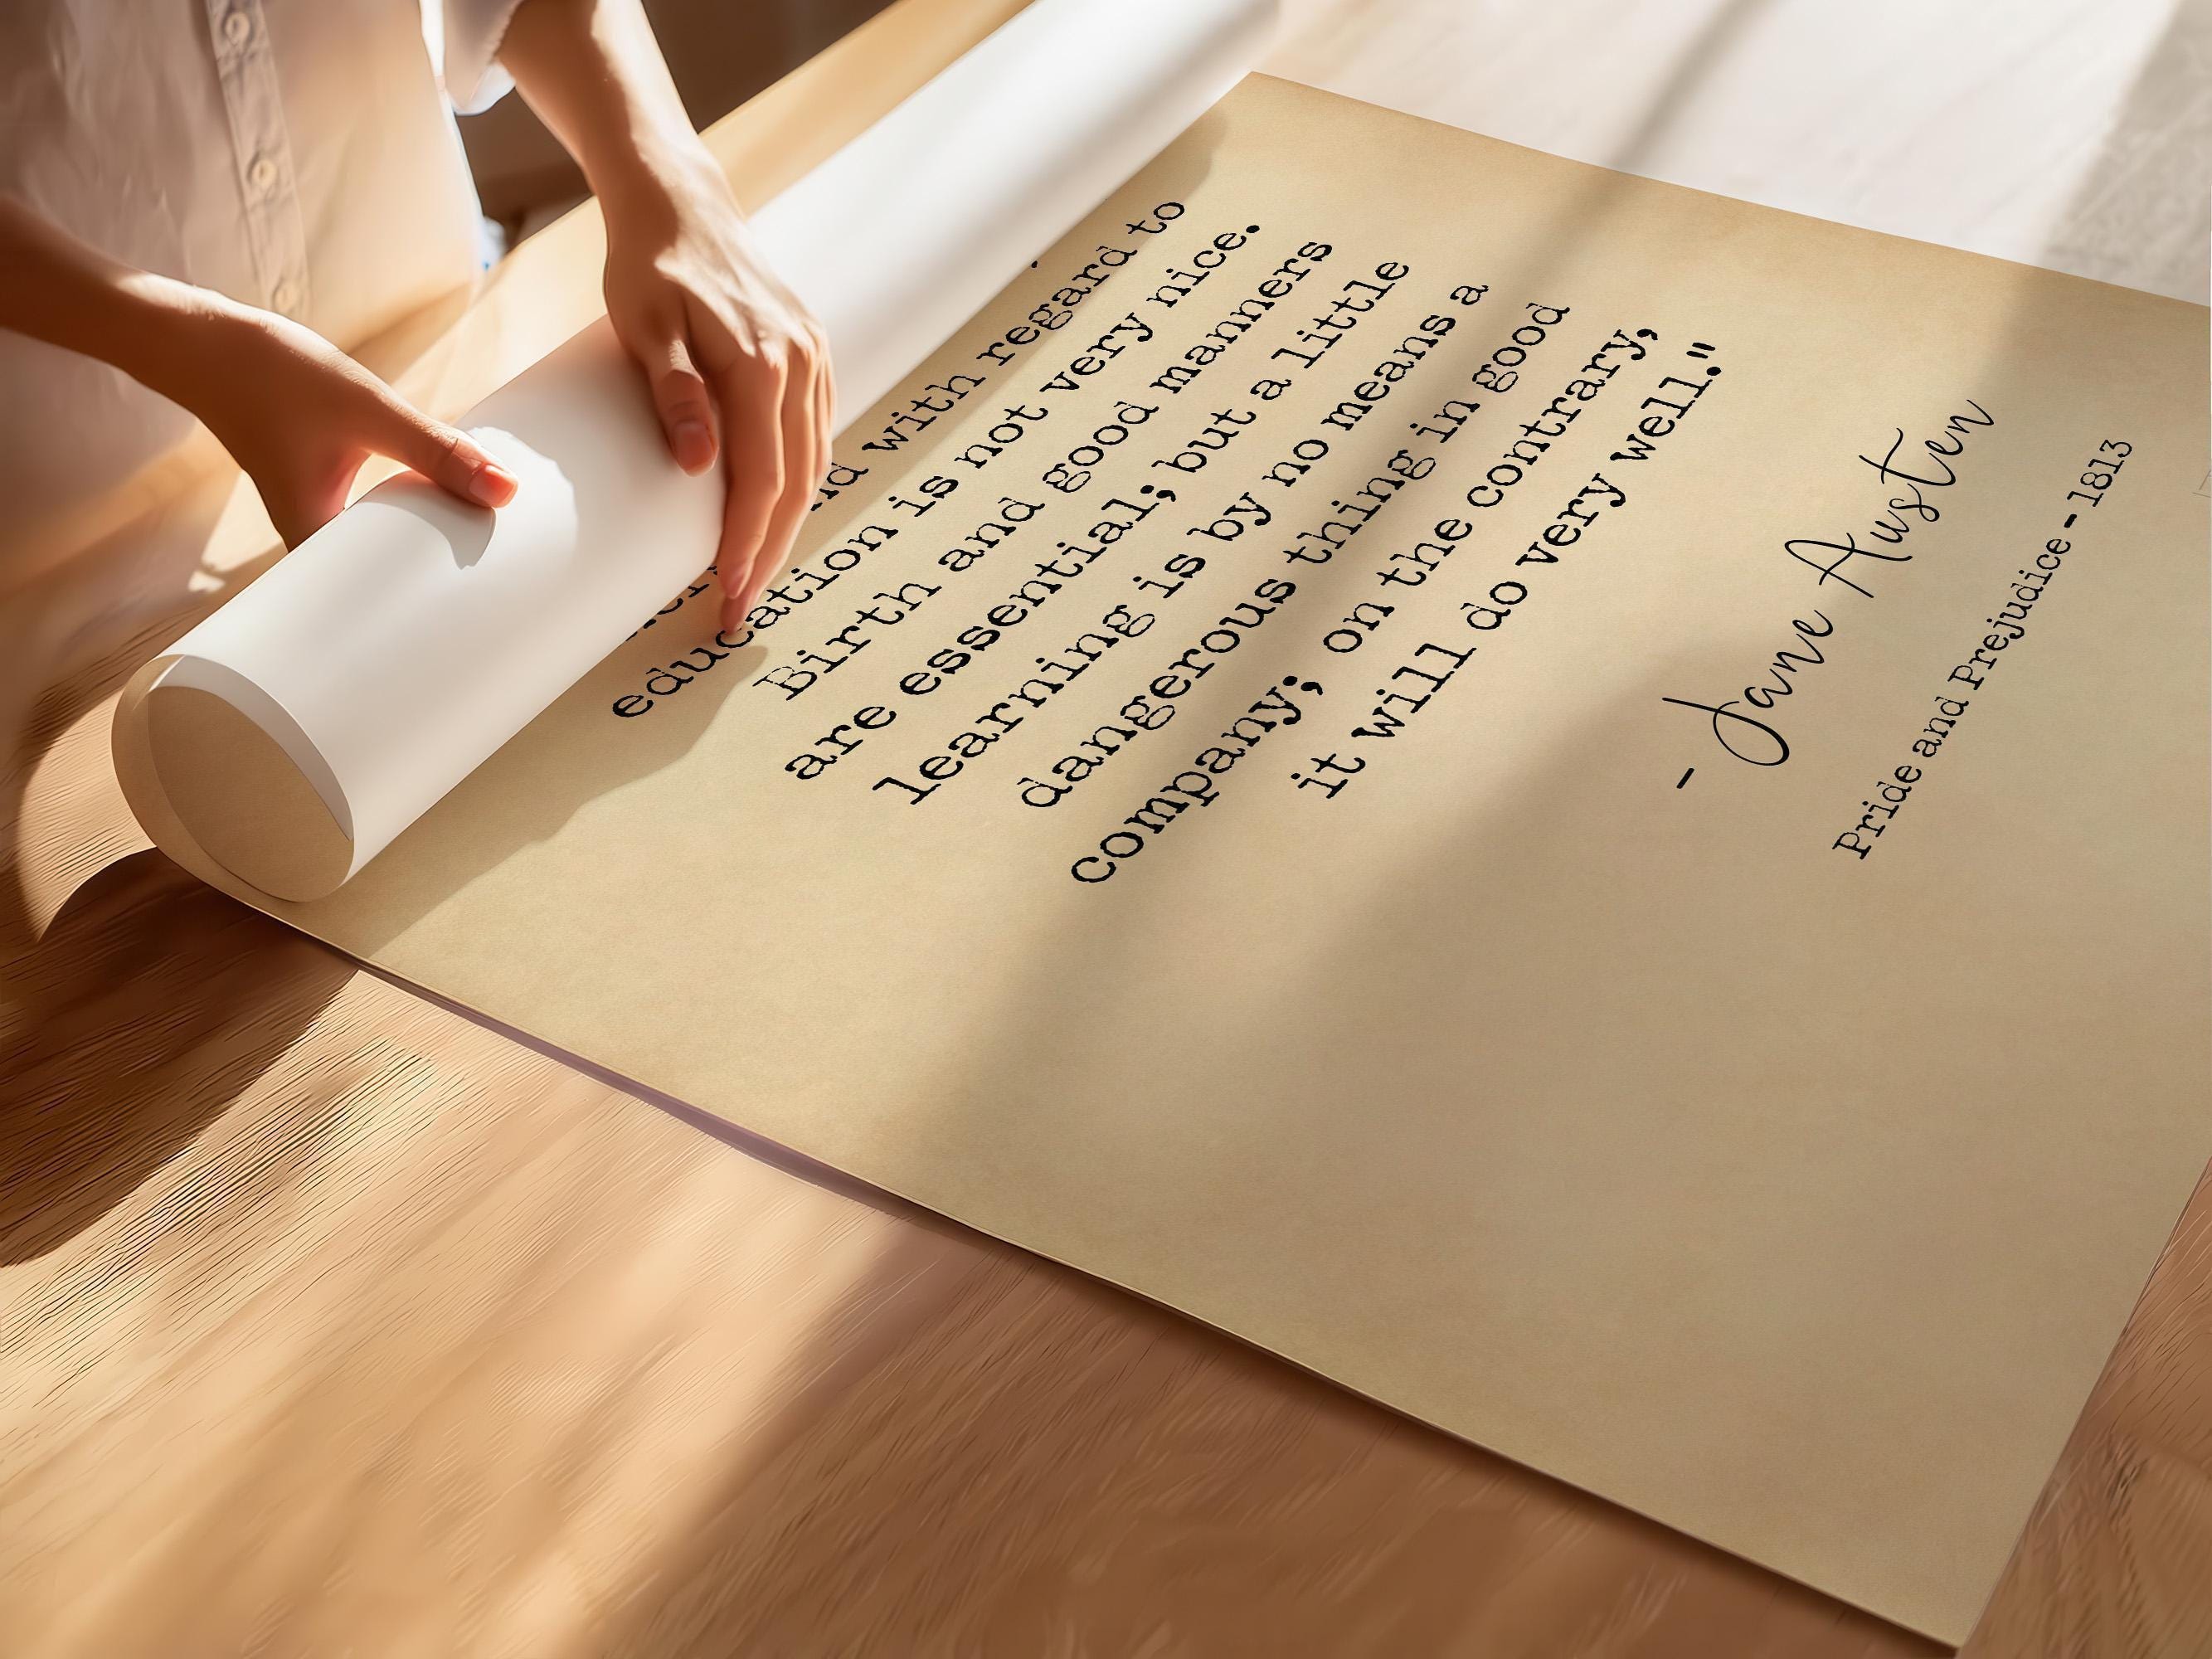 with regard to
education is not very nice.
Birth and good manners
are essential; but a little
learning is by no means a
dangerous thing in good
company; on the contrary,
it will do very well."
- Jane Austen
Pride and Prejudice - 1813